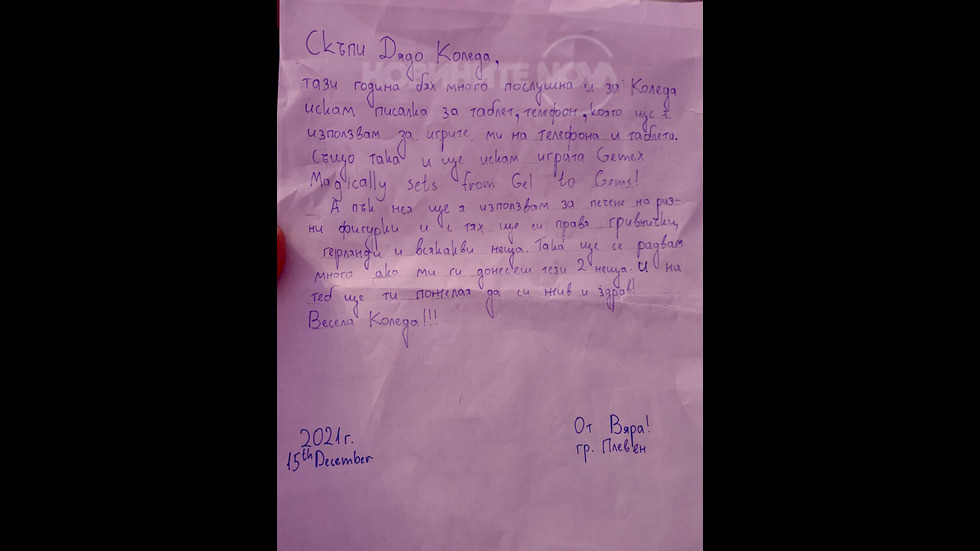 Скъпи Дядо Коледа,
НОВИНИТЕ NOVA
тази година бях много послушна и за Коледа
искам писалка за таблет, телефон, която ще я
използвам за игрите ми на телефона и таблета.
Също така и ще искам играта Gemex
Magically sets from Gel to Gems!
А пък нея ще я използвам за печене на раз-
ни фигурки и с тях ще си правя гривнички,
герлянди и всякакви неща. Така ще се радвам
много ако ми ги донесеш тези 2 неща. И на
теб ще ти пожелая да си жив и здрав!
Весела Коледа!!!
От Вяра!
гр. Плевен
2021г.
15th December